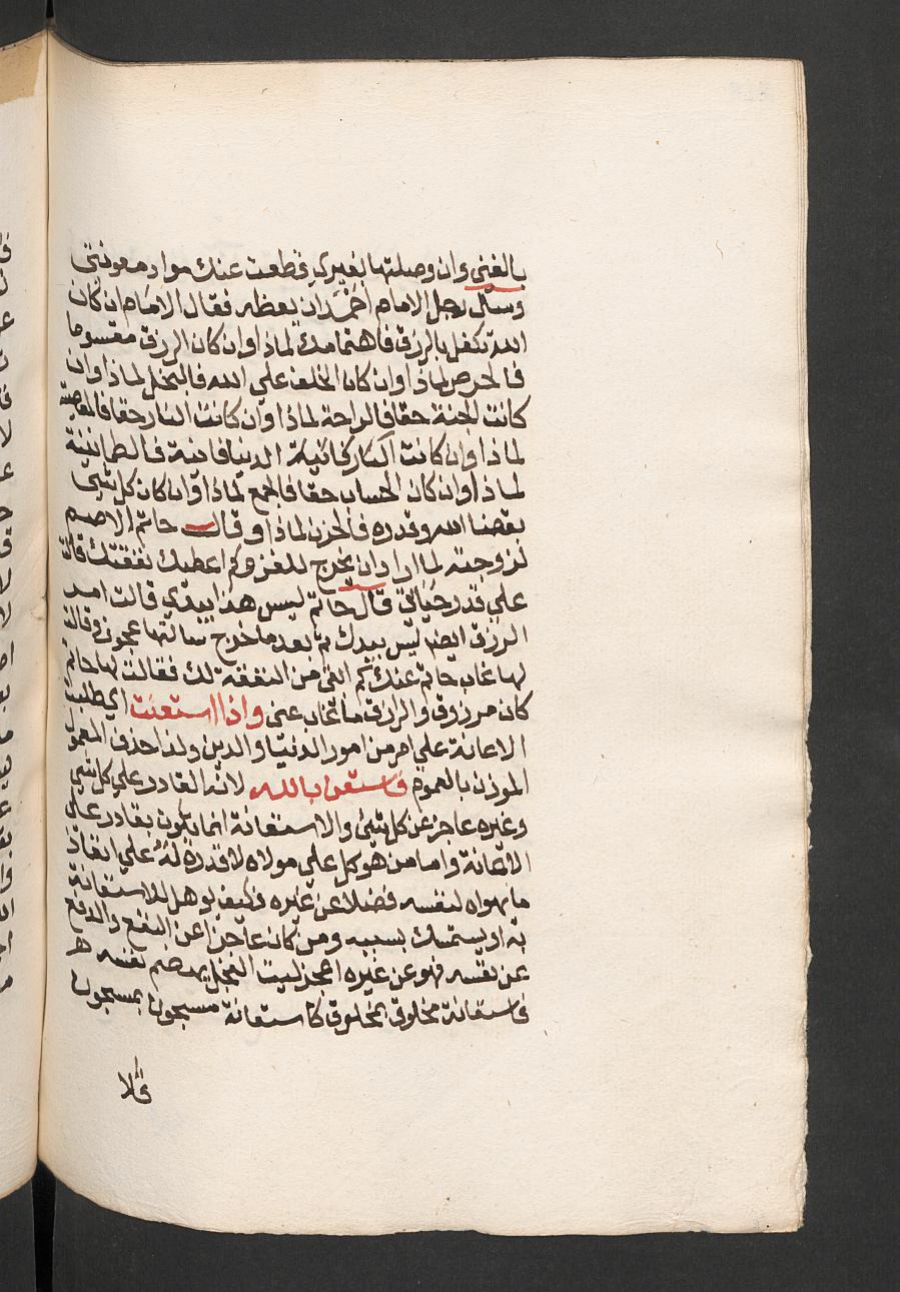 بالغني وان وصلتها بغيري قطعت عنك مواد معونتي
وسال رجل الامام احمد ان يعظه فقال الامام ان كان
الله تكفل بالرزق فاهتمامك لماذا وان كان الرزق مقسوما
فالحرص لماذا وان كان الخلف علي الله فالبخل لماذا وان
كانت الجنة حقا فالراحة لماذا وان كانت النار حقا فالمعصية
لماذا وان كانت الدنيا فانية فالطمانينة
لماذا وان كان الحساب حقا فالجمع لماذا وان كان كل شيء
بقضا الله وقدره فالحزن لماذا وقال حاتم الاصم
لزوجته لما اراد ان يخرج للغزو كم اعطيك نفقتك قالت
علي قدر حياتي قال حاتم ليس هذا بيدي قالت امد
الرزق ايضا ليس بيدك ثم بعد ما خرج سالتها عجوز وقالت
لها غاب حاتم عنك كم القي من النفقة لك فقالت لها حاتم
كان مرزوق والرازق ما غاب عني واذا استعنت اي طلبت
الاعانة علي امر من امور الدنيا والدين ولذا حذف المعمول
الموذن بالعموم فاستعن بالله لانه القادر علي كل شيء
وغيره عاجز عن كل شيء والاستعانة انما تكون بقادر علي
الاعانة واما من هو كل علي مولاه لا قدرة له علي انفاذ
ما يهواه لنفسه فضلا عن غيره فكيف يوهل للاستعانة
به او يستمسك بسببه ومن كان عاجزا عن النفع والدفع
عن نفسه فهو عن غيره اعجز ليت الفحل يهضم نفسه
فاستعانة مخلوق بمخلوق كاستعانة مسجون بمسجون
فلا